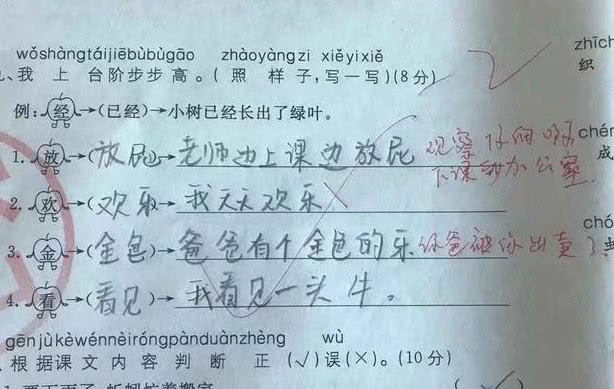 wǒshàngtáijiēbùbùgāo zhàoyàngzi xiěyixiě zhīch
、我 上 台阶步步 高。(照 样 子,写一写)(8分) 织
例:经→(已经)→小树已经长出了绿叶。
1.放→(放屁)→老师边上课边放屁 观察仔细啊 chén
下课到办公室 成
2.欢→(欢乐)→我天天欢乐
3.金→(金色)→爸爸有个金色的乐 你爸被你出卖了 chó
4.看→(看见)→我看见一头牛。
gēnjùkèwénnèiróngpànduànzhèng wù
、根据课文内容判断 正(√)误(×)。(10分)